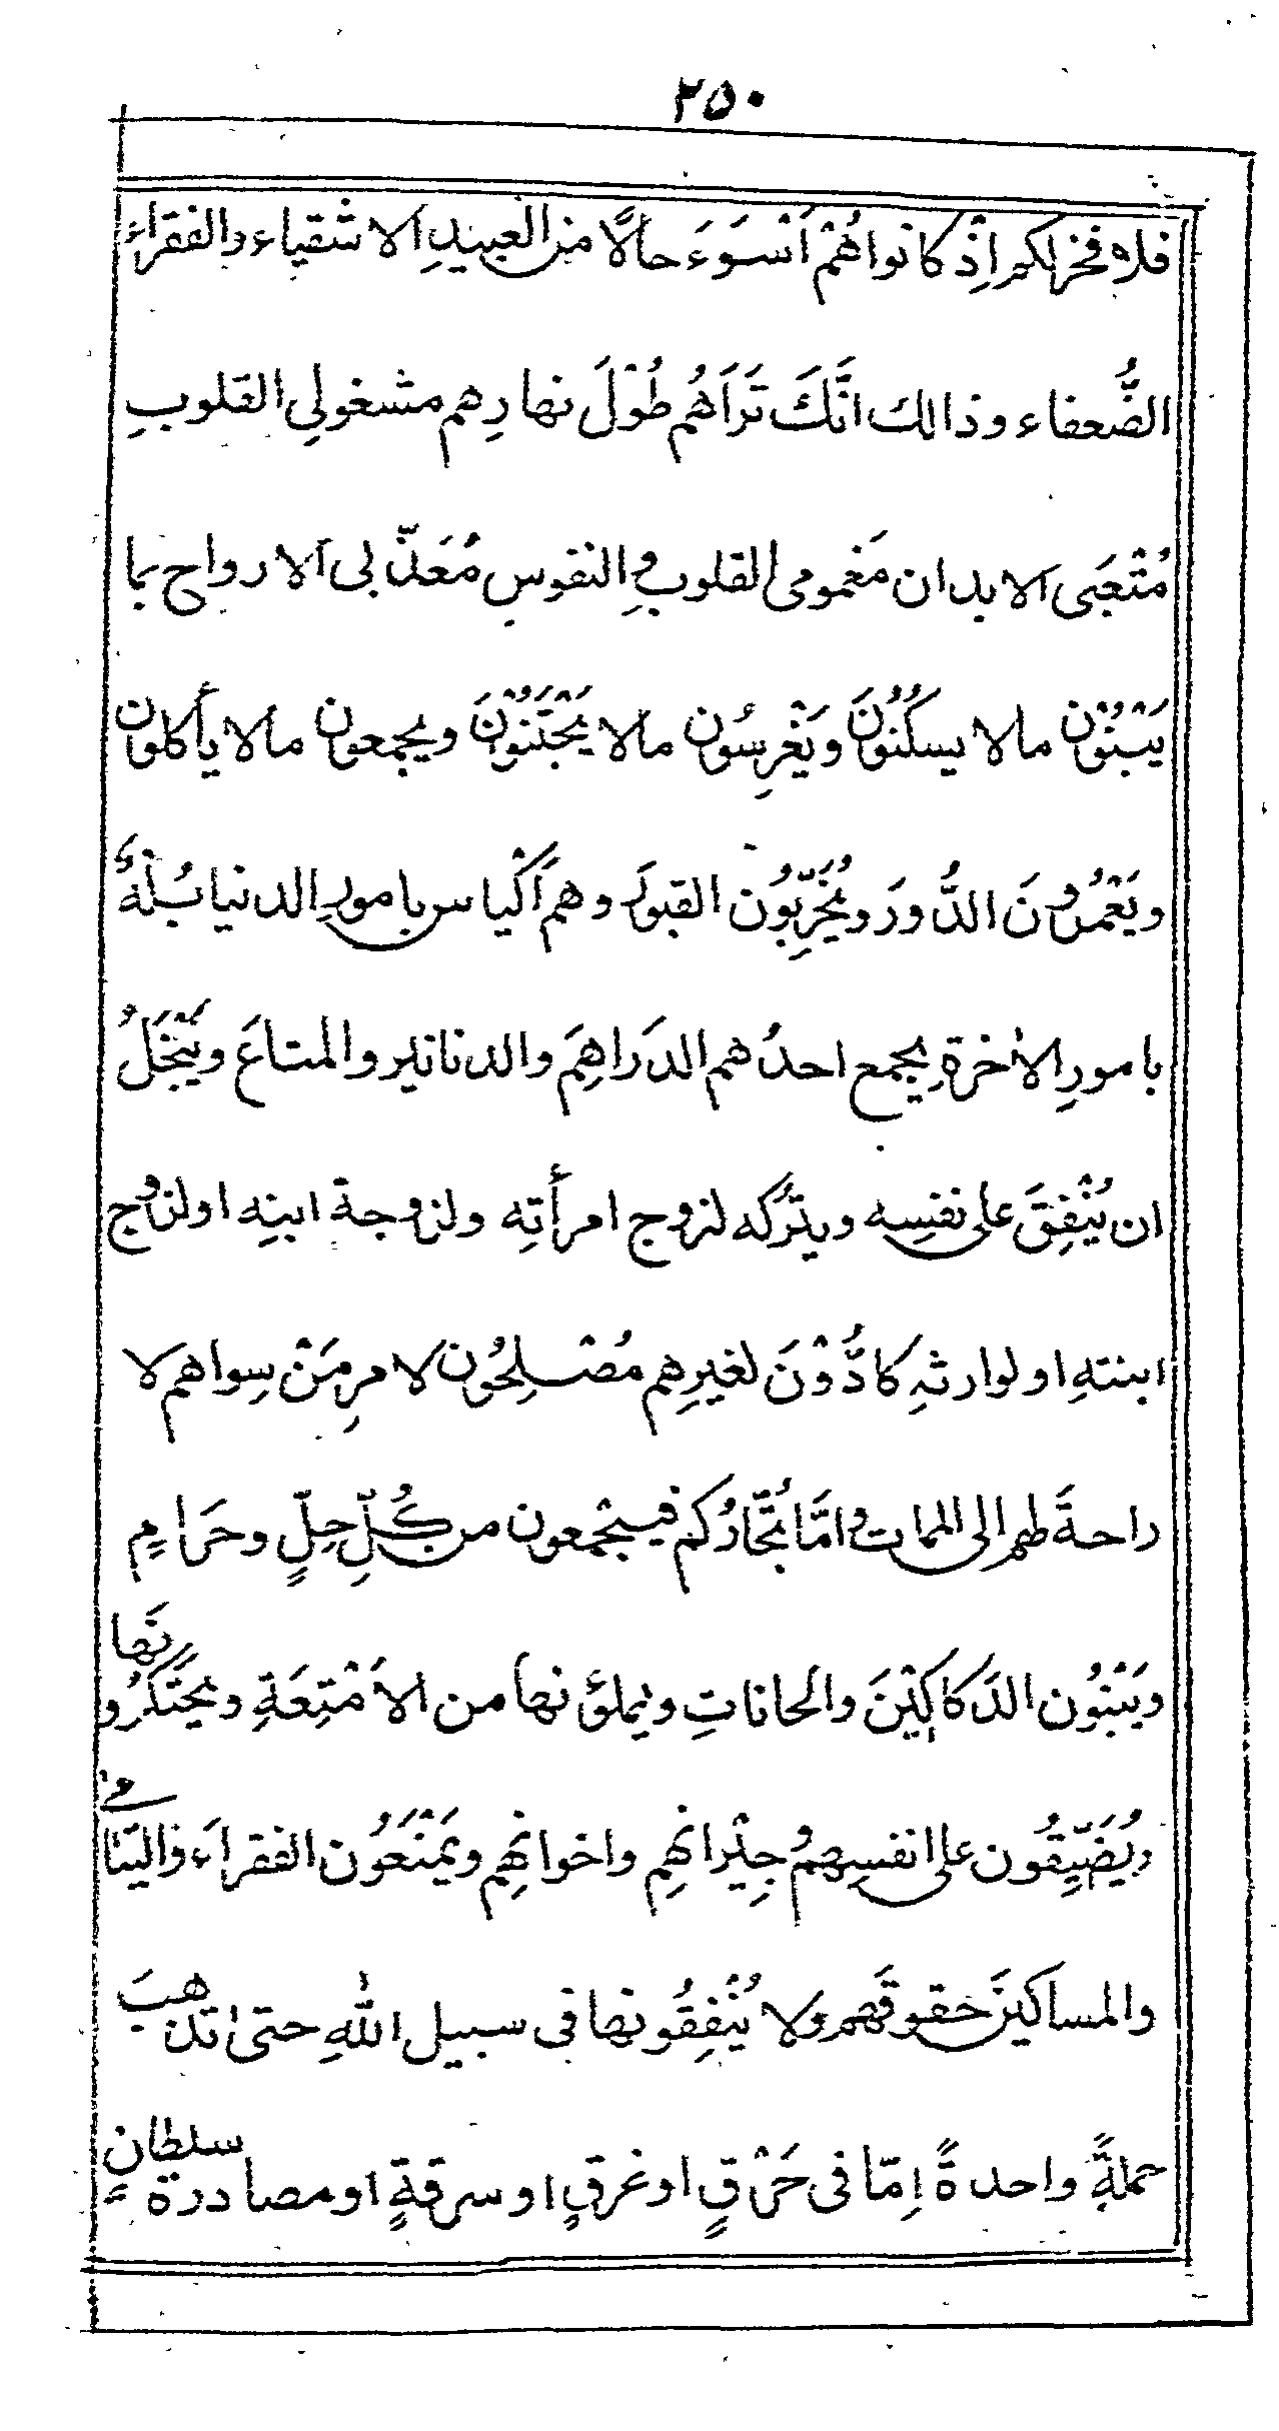 ٢٥٠
فلا فخر لكم اذْ كانوا هُمْ اَسْوَءَ حالًا من العبيدِ الاشقياء والفقراء
الضُّعفاء وذالك انَّكَ تَرَاهُم طُوْلَ نهارِهم مشغولِى القلوبِ
مُتْعَبَى الابدان مَغمومى القلوبِ و النفوسِ مُعَذَّبى الارواح بما
يَبْنُوْن مالا يسكُنُوْنَ ويَغْرِسُون مالا يَجْتَنُوْنَ ويجمعون مالا يأكلون
ويَعْمُرُونَ الدُّورَ ويُخَرِّبُون القبورَ وهم اَكْياس بامورِ الدنيا بُلْهٌ
بامورِ الاٰخرةِ يجمع احدُهم الدَراهِمَ والدنانير والمتاعَ ويَبْخَلُ
ان يُنْفِقَ على نفسِه ويترُكه لزوج امرأتِه ولزوجة ابنِه اولزوج
ابنتهِ اولوارثِهٖ كادُّوْنَ لغيرِهم مُصْلِحُون لامرِ مَنْ سِواهم لا
راحةَ لهم الى الممات و امَّا تُجَّارُكم فيجْمعون من كُلِّ حِلٍّ وحَرَامٍ
ويَبْنُون الدَكاكِيْنَ والحاناتِ ويملؤنها من الاَمْتِعَةِ ويحْتَكِرُونَها
ويُضَيِّقُون على انفسِهم و جِيْرانهِم واخوانِهِم ويَمْنَعُون الفقراءَ واليَتامٰى
والمساكينَ حقوقَهم ولا يُنْفِقُونها فى سبيل اللّٰهِ حتىٰ تذهبَ
جملةً واحدةً اِمّا فى حَرْقٍ اوغرقٍ او سرقةٍ او مصادرة سلطانٍ